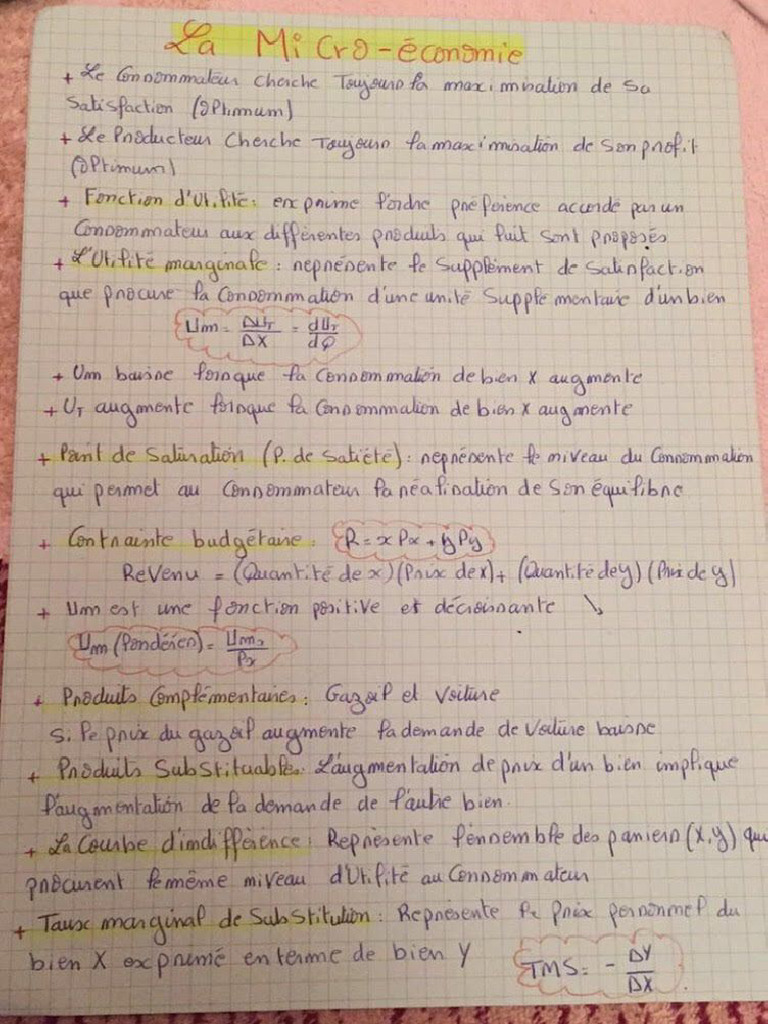 La Micro-économie
+ Le Consommateur cherche Toujours la maximisation de sa
Satisfaction (Optimum)
+ Le Producteur cherche Toujours la maximisation de son profit
(Optimum)
+ Fonction d'Utilité : exprime l'ordre préférence accordé par un
Consommateur aux différentes produits qui luit sont proposés
+ L'Utilité marginale : représente le Supplément de Satisfaction
que procure la Consommation d'une unité Supplémentaire d'un bien
Um = ΔUT/ΔX = dUT/dQ
+ Um baisse lorsque la Consommation de bien X augmente
+ UT augmente lorsque la Consommation de bien X augmente
+ Point de Saturation (P. de Satiété) : représente le niveau du Consommation
qui permet au Consommateur la réalisation de son équilibre
+ Contrainte budgétaire : R = x Px + y Py
Revenu = (Quantité de x) (Prix de x) + (Quantité de y) (Prix de y)
+ Um est une fonction positive et décroissante ↘
Um (Pondérée) = Umx/Px
+ Produits Complémentaires : Gazoil et Voiture
Si le prix du gazoil augmente la demande de Voiture baisse
+ Produits Substituables : L'augmentation de prix d'un bien implique
l'augmentation de la demande de l'autre bien.
+ La Courbe d'indifférence : Représente l'ensemble des paniers (X,y) qui
procurent le même niveau d'Utilité au Consommateur
+ Taux marginal de Substitution : Représente le prix personnel du
bien X exprimé en terme de bien Y TMS = - ΔY/ΔX